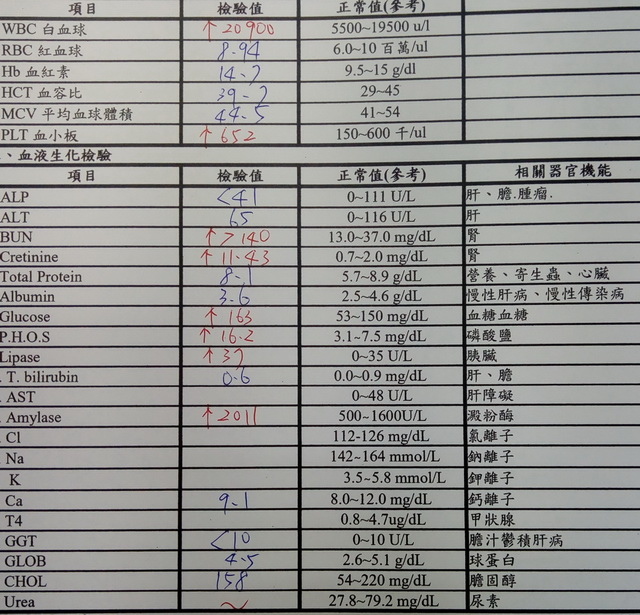 項目 檢驗值 正常值(參考)
WBC 白血球 ↑20900 5500~19500 u/l
RBC 紅血球 8.94 6.0~10 百萬/ul
Hb 血紅素 14.7 9.5~15 g/dl
HCT 血容比 39.7 29~45
MCV 平均血球體積 44.5 41~54
PLT 血小板 ↑652 150~600 千/ul
、血液生化檢驗
項目 檢驗值 正常值(參考) 相關器官機能
ALP <41 0~111 U/L 肝、膽.腫瘤.
ALT 65 0~116 U/L 肝
BUN ↑>140 13.0~37.0 mg/dL 腎
Cretinine ↑11.43 0.7~2.0 mg/dL 腎
Total Protein 8.1 5.7~8.9 g/dL 營養、寄生蟲、心臟
Albumin 3.6 2.5~4.6 g/dL 慢性肝病、慢性傳染病
Glucose ↑163 53~150 mg/dL 血糖血糖
P.H.O.S ↑16.2 3.1~7.5 mg/dL 磷酸鹽
Lipase ↑37 0~35 U/L 胰臟
. T. bilirubin 0.6 0.0~0.9 mg/dL 肝、膽
. AST 0~48 U/L 肝障礙
. Amylase ↑2011 500~1600U/L 澱粉酶
. Cl 112-126 mg/dL 氯離子
. Na 142~164 mmol/L 鈉離子
K 3.5~5.8 mmol/L 鉀離子
Ca 9.1 8.0~12.0 mg/dL 鈣離子
T4 0.8~4.7ug/dL 甲狀腺
GGT <10 0~10 U/L 膽汁鬱積肝病
GLOB 4.5 2.6~5.1 g/dL 球蛋白
CHOL 158 54~220 mg/dL 膽固醇
Urea ~ 27.8~79.2 mg/dL 尿素